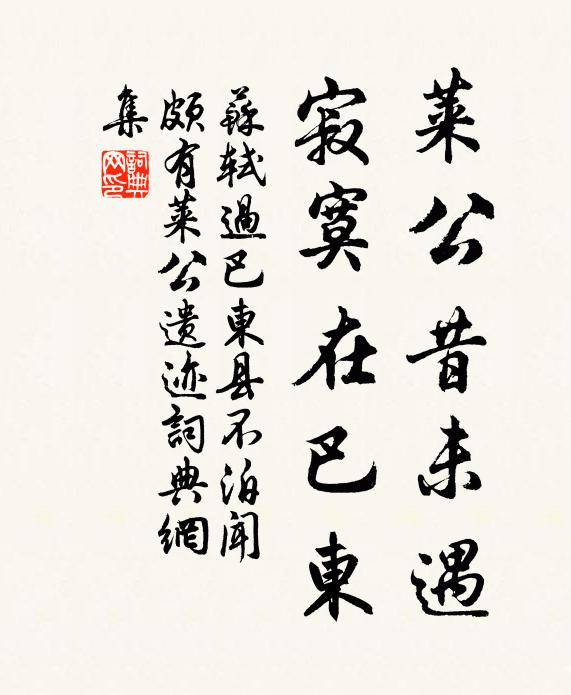 莱公昔未遇
寂寞在巴東
蘇轼過巴東县不泊聞
頗有莱公遗迹詞典網
集
詞典
网印